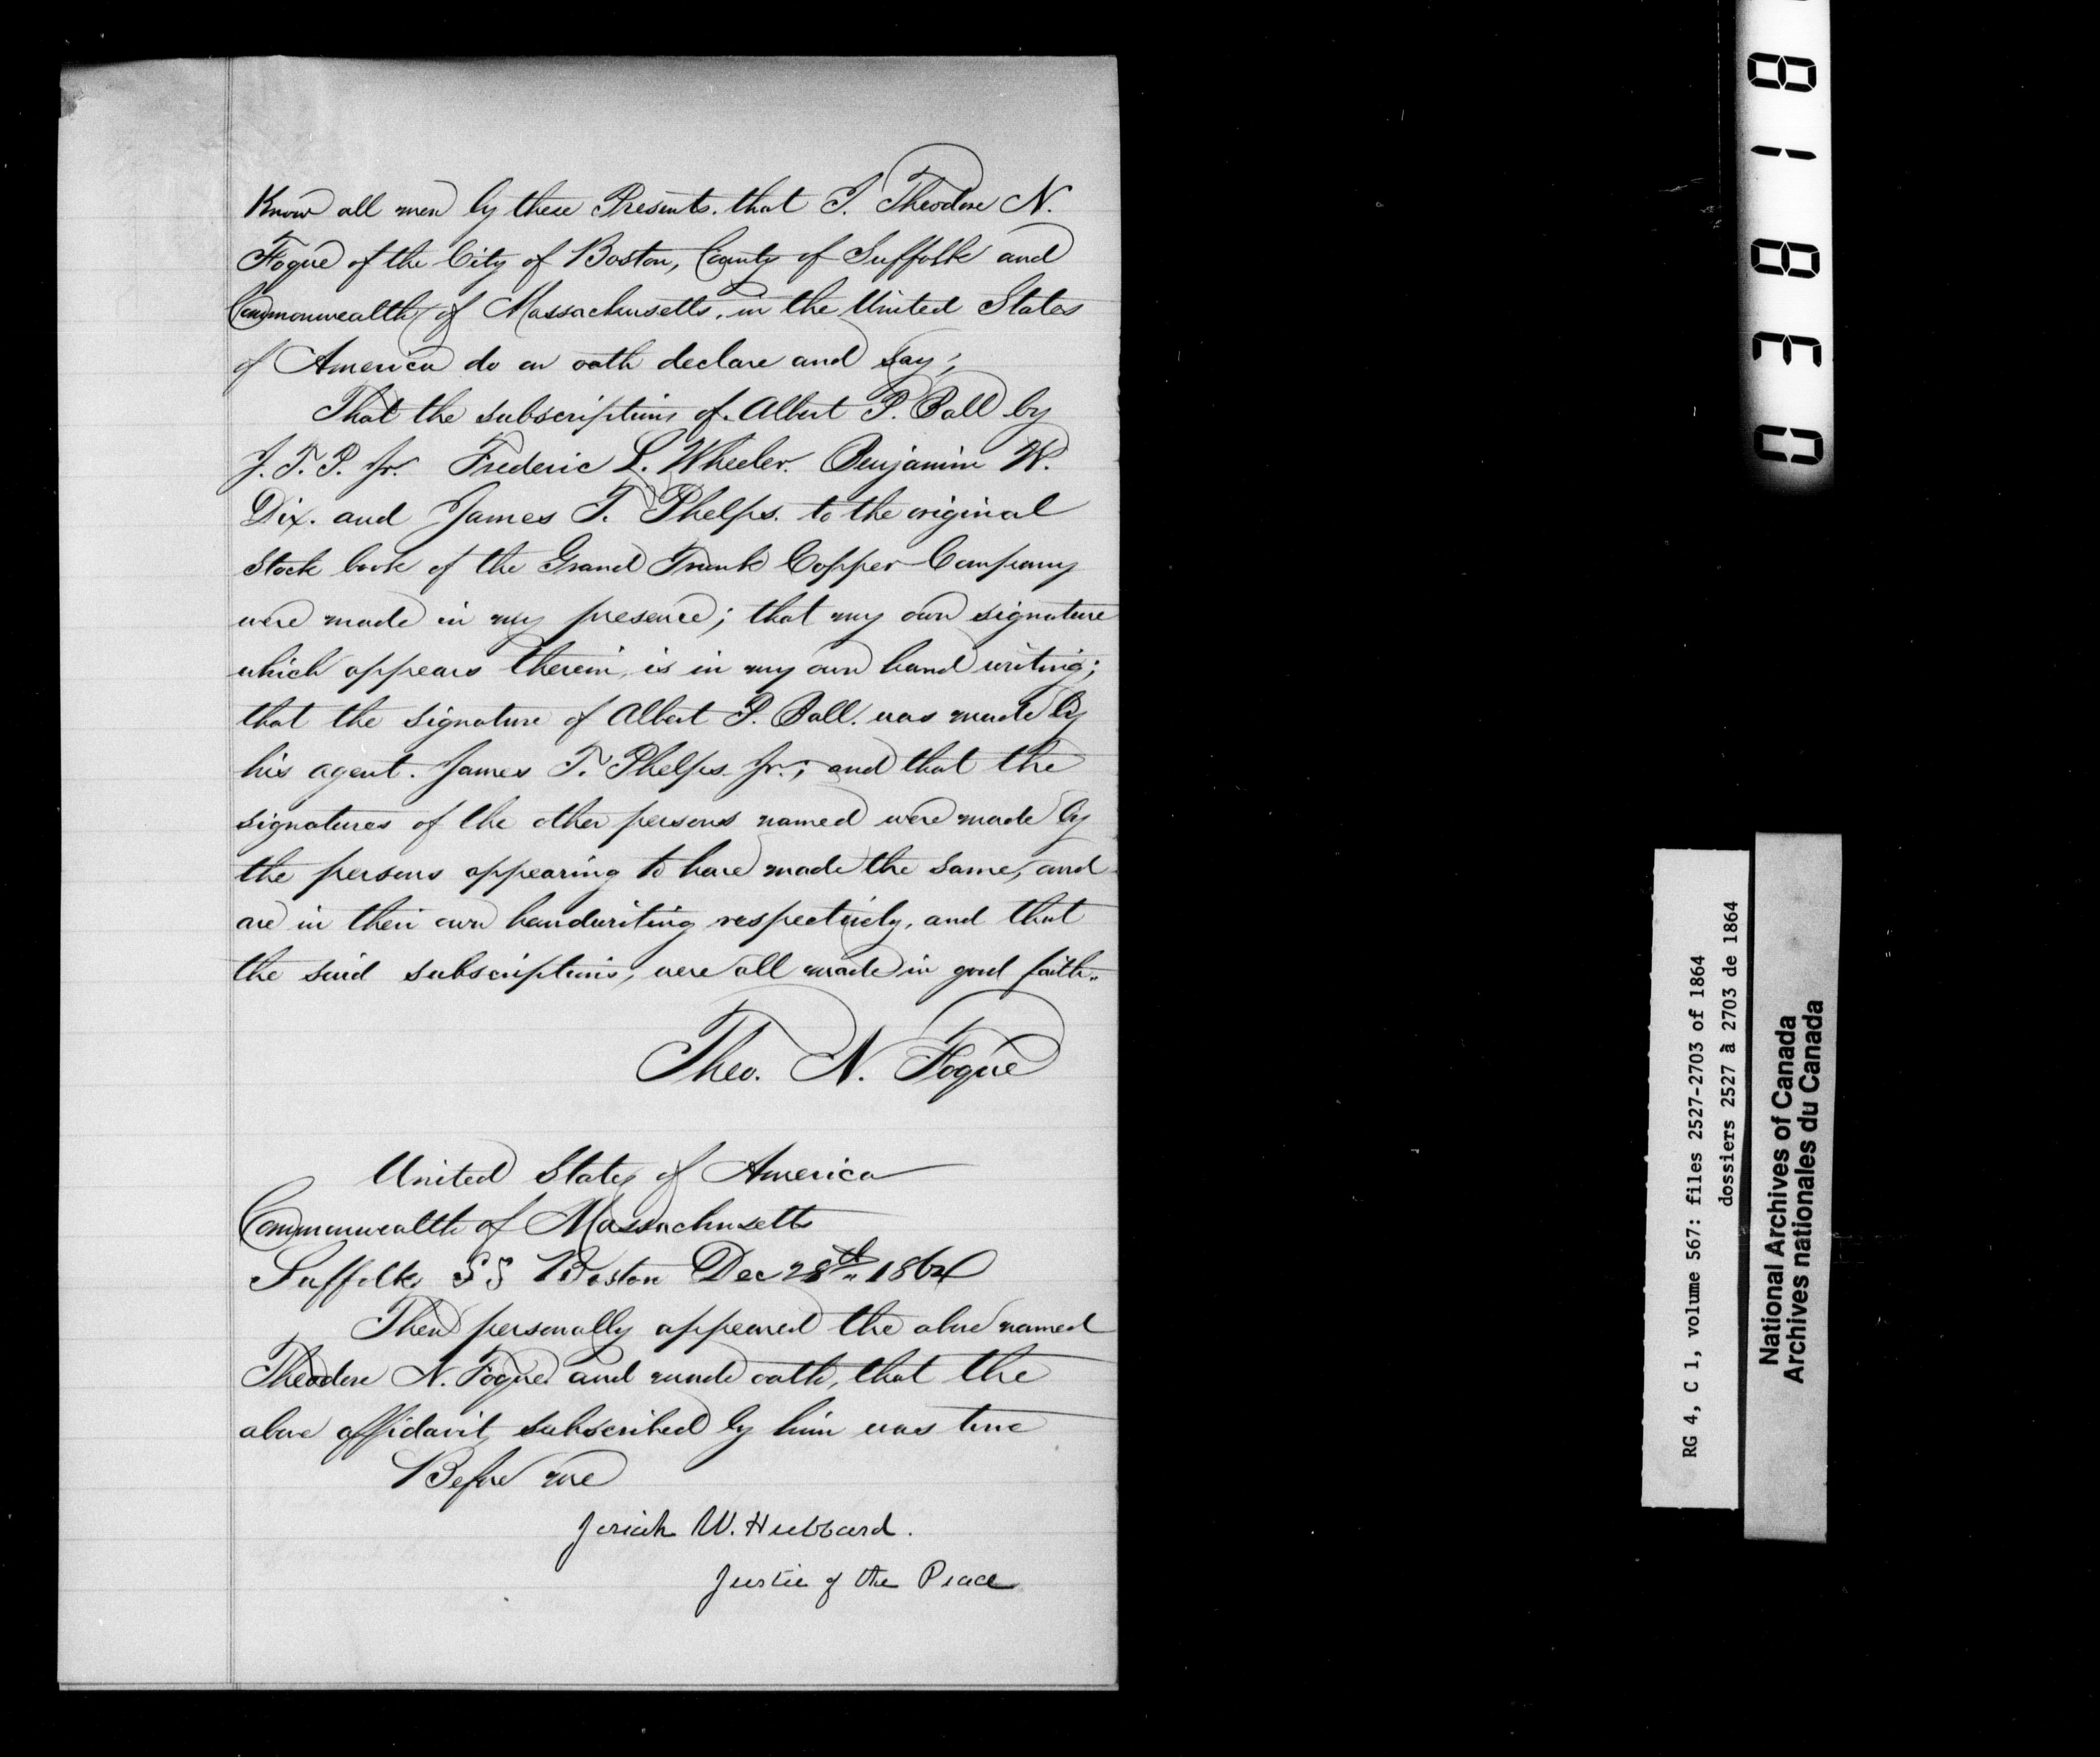 Know all men by these Presents. that I. Theodore N.
Fogue of the City of Boston, County of Suffolk and
Commonwealth of Massachusetts. in the United States
of America do on oath declare and say;
That the subscriptions of. Albert P. Ball by
J. T. P. Jr. Frederic L. Wheeler. Benjamin W.
Dix. and James T. Phelps. to the original
stock book of the Grand Trunk Copper Company
were made in my presence; that my own signature
which appears therein, is in my own hand writing;
that the signature of Albert P. Ball. was made by
his agent. James T. Phelps. Jr.; and that the
signatures of the other persons named were made by
the persons appearing to have made the same, and
are in their own handwriting respectively, and that
the said subscriptions, were all made in good faith..
Theo. N. Fogue
United States of America
Commonwealth of Massachusetts
Suffolk SS Boston Dec 28th 1864
Then personally appeared the above named
Theodore N. Fogue and made oath, that the
above affidavit subscribed by him was true
Before me
Josiah W. Hubbard.
Justice of the Peace
RG 4, C 1, volume 567: files 2527-2703 of 1864
dossiers 2527 à 2703 de 1864
National Archives of Canada
Archives nationales du Canada